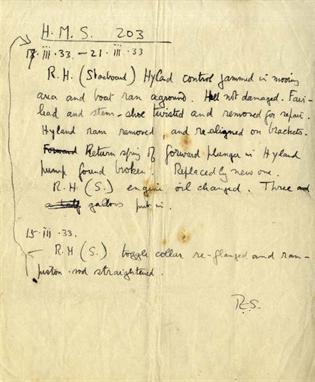 H.M.S. 203
17.iii.33 – 21.iii.33
R.H. (Starboard) Hyland control jammed in mooring
area and boat ran aground. Hull not damaged. Fair-
lead and stem-shoe twisted and removed for repair.
Hyland ram removed and re-aligned on brackets.
Forward Return spring of forward plunger in Hyland
pump found broken. Replaced by new one.
R.H (S.) engine oil changed. Three and
a half gallons put in.
15.iii.33.
R.H (S.) toggle collar re-flanged and ram-
piston rod straightened.